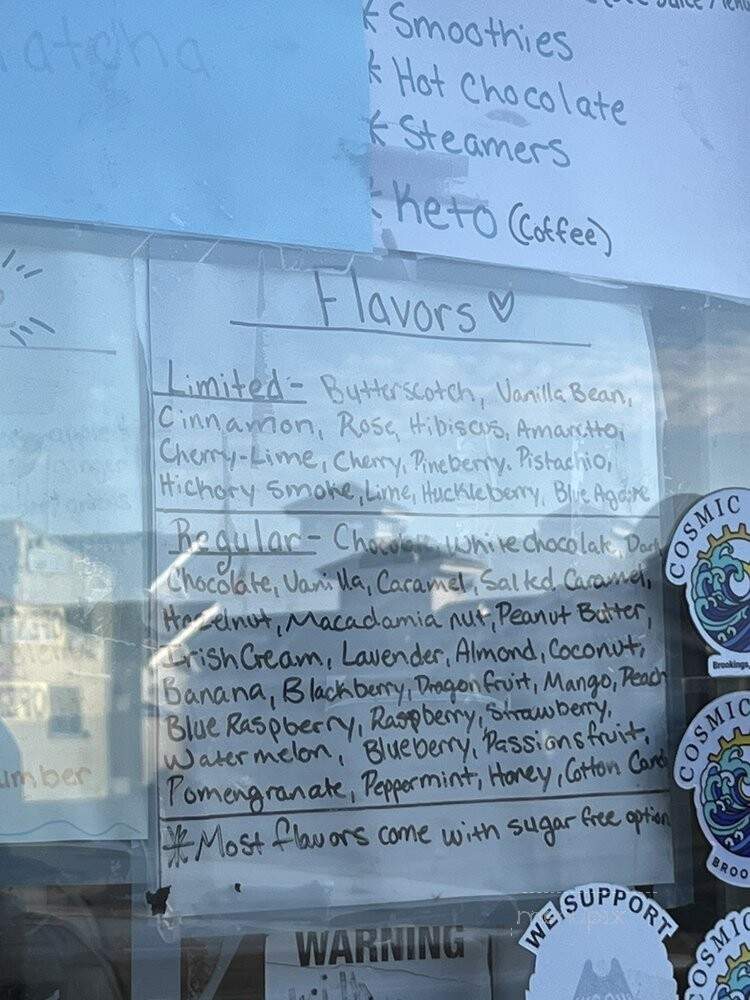 atcha
* Smoothies
* Hot Chocolate
* Steamers
* Keto (Coffee)
Flavors ♡
Limited - Butterscotch, Vanilla Bean,
Cinnamon, Rose, Hibiscus, Amaretto,
Cherry-Lime, Cherry, Pineberry, Pistachio,
Hickory Smoke, Lime, Huckleberry, Blue Agave
Regular - Chocolate, White chocolate, Dark
Chocolate, Vanilla, Caramel, Salted Caramel,
Hazelnut, Macadamia nut, Peanut Butter,
Irish Cream, Lavender, Almond, Coconut,
Banana, Blackberry, Dragonfruit, Mango, Peach
Blue Raspberry, Raspberry, Strawberry,
Watermelon, Blueberry, Passionsfruit,
Pomengranate, Peppermint, Honey, Cotton Cand
* Most flavors come with sugar free option
umber
COSMIC
Brookings,
COSMIC
BROO
WE SUPPORT
WARNING
COSMIC